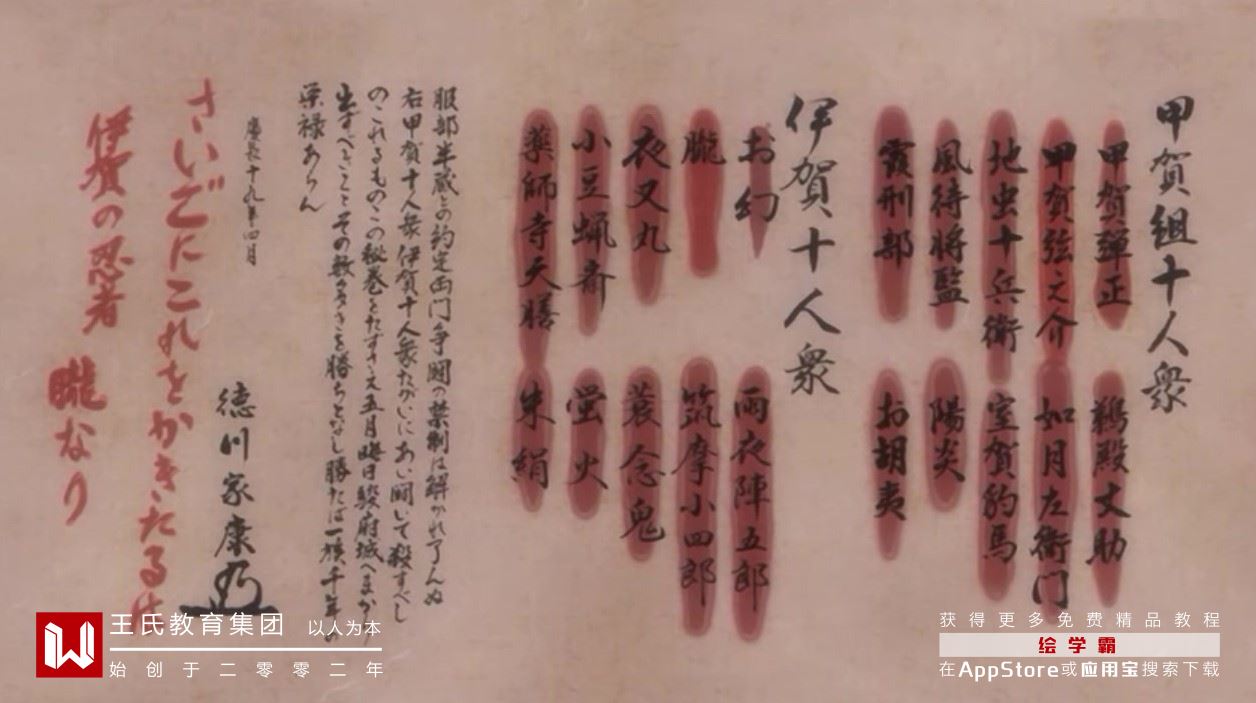 甲賀組十人衆
甲賀彈正
甲賀弦之介
地虫十兵衛
風待将監
霞刑部
鵜殿丈助
如月左衛門
室賀豹馬
陽炎
お胡夷
伊賀十人衆
お幻
朧
夜叉丸
小豆蝋斎
薬師寺天膳
雨夜陣五郎
筑摩小四郎
蓑念鬼
蛍火
朱絹
服部半蔵との約定両門争闘の禁制は解かれ了んぬ
右甲賀十人衆伊賀十人衆たがいにあい闘いて殺すべし
のこれるものこの秘巻をたずさえ五月晦日駿府城へまか
出すべきことその数多きを勝ちとなし勝たば一族千年の
栄禄あらん
慶長十九年四月
徳川家康
さいごにこれをかきたるは
伊賀の忍者 朧なり
王氏教育集团 以人为本
始创于二零零二年
获得更多免费精品教程
绘学霸
在AppStore或应用宝搜索下载